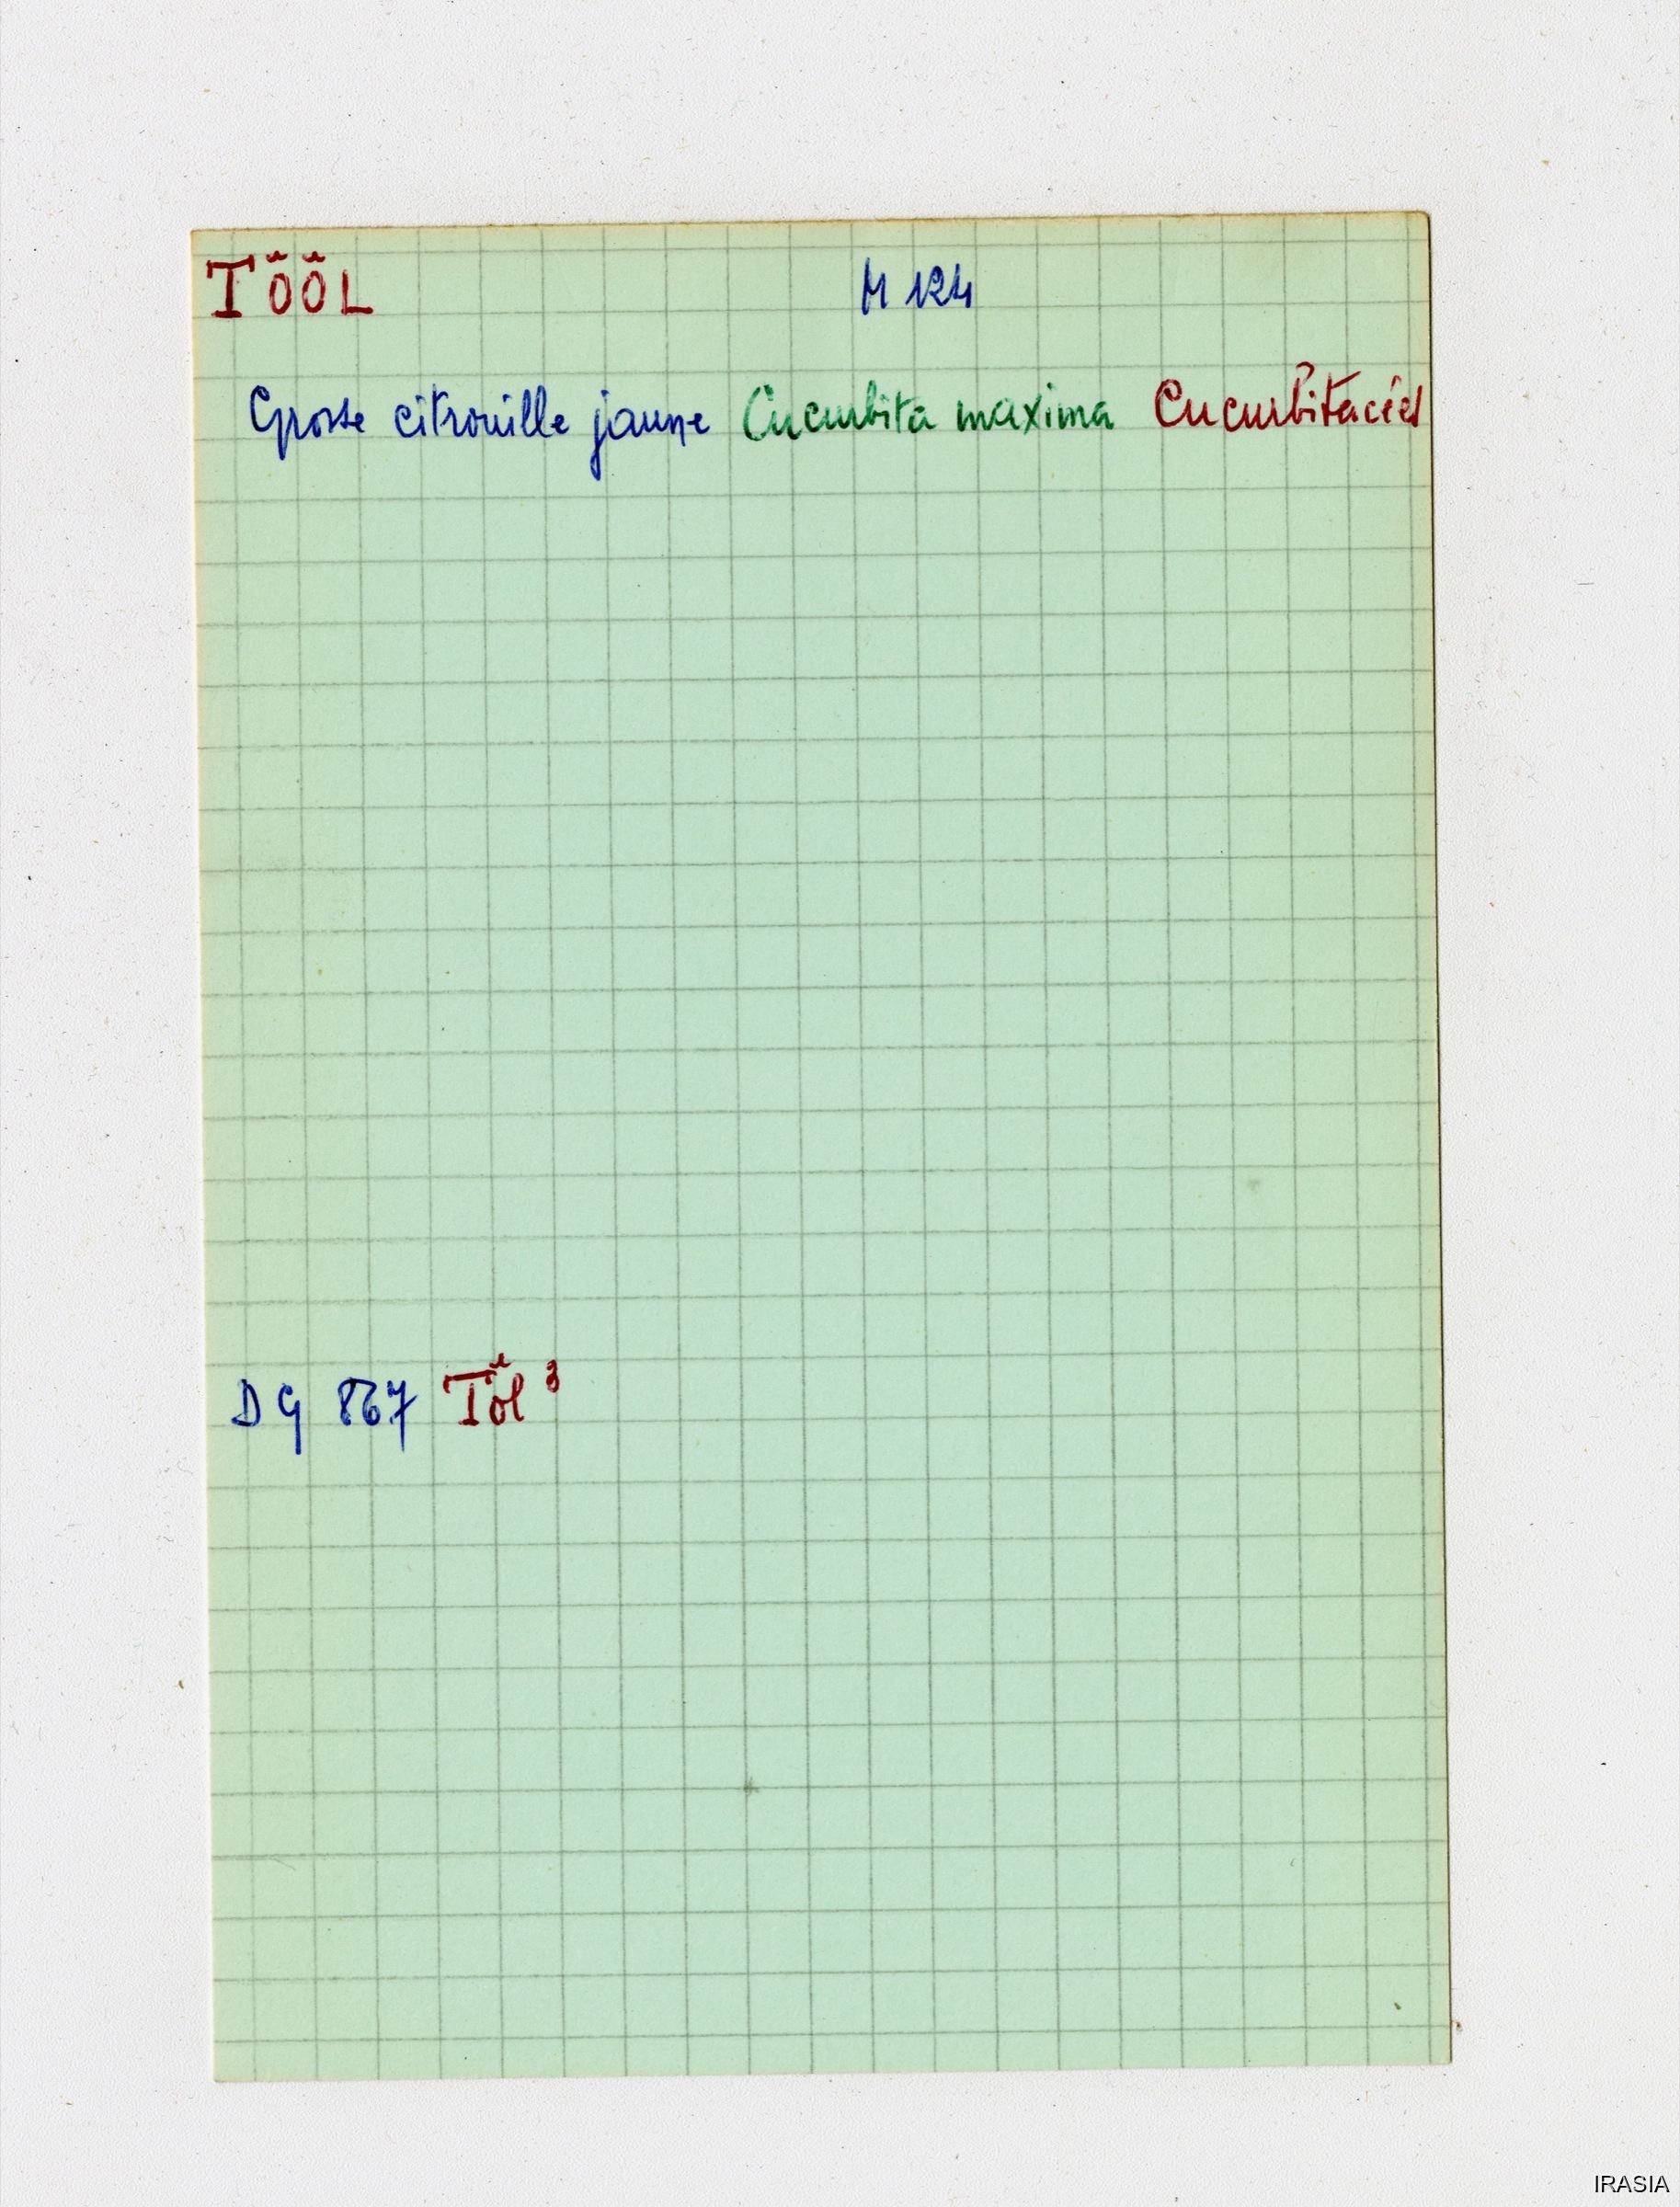 TÖÖL M 124
Grosse citrouille jaune Cucurbita maxima Cucurbitacées
DG 867 Töl ³
IRASIA